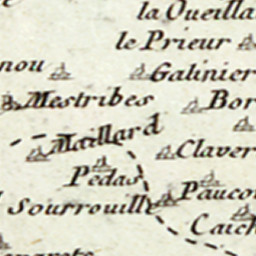 la Oueilla
le Prieur
nou Galinier
Mestribes Bor
Maillard
Claver
Pedas
Paucou
Sourrouill
Caich